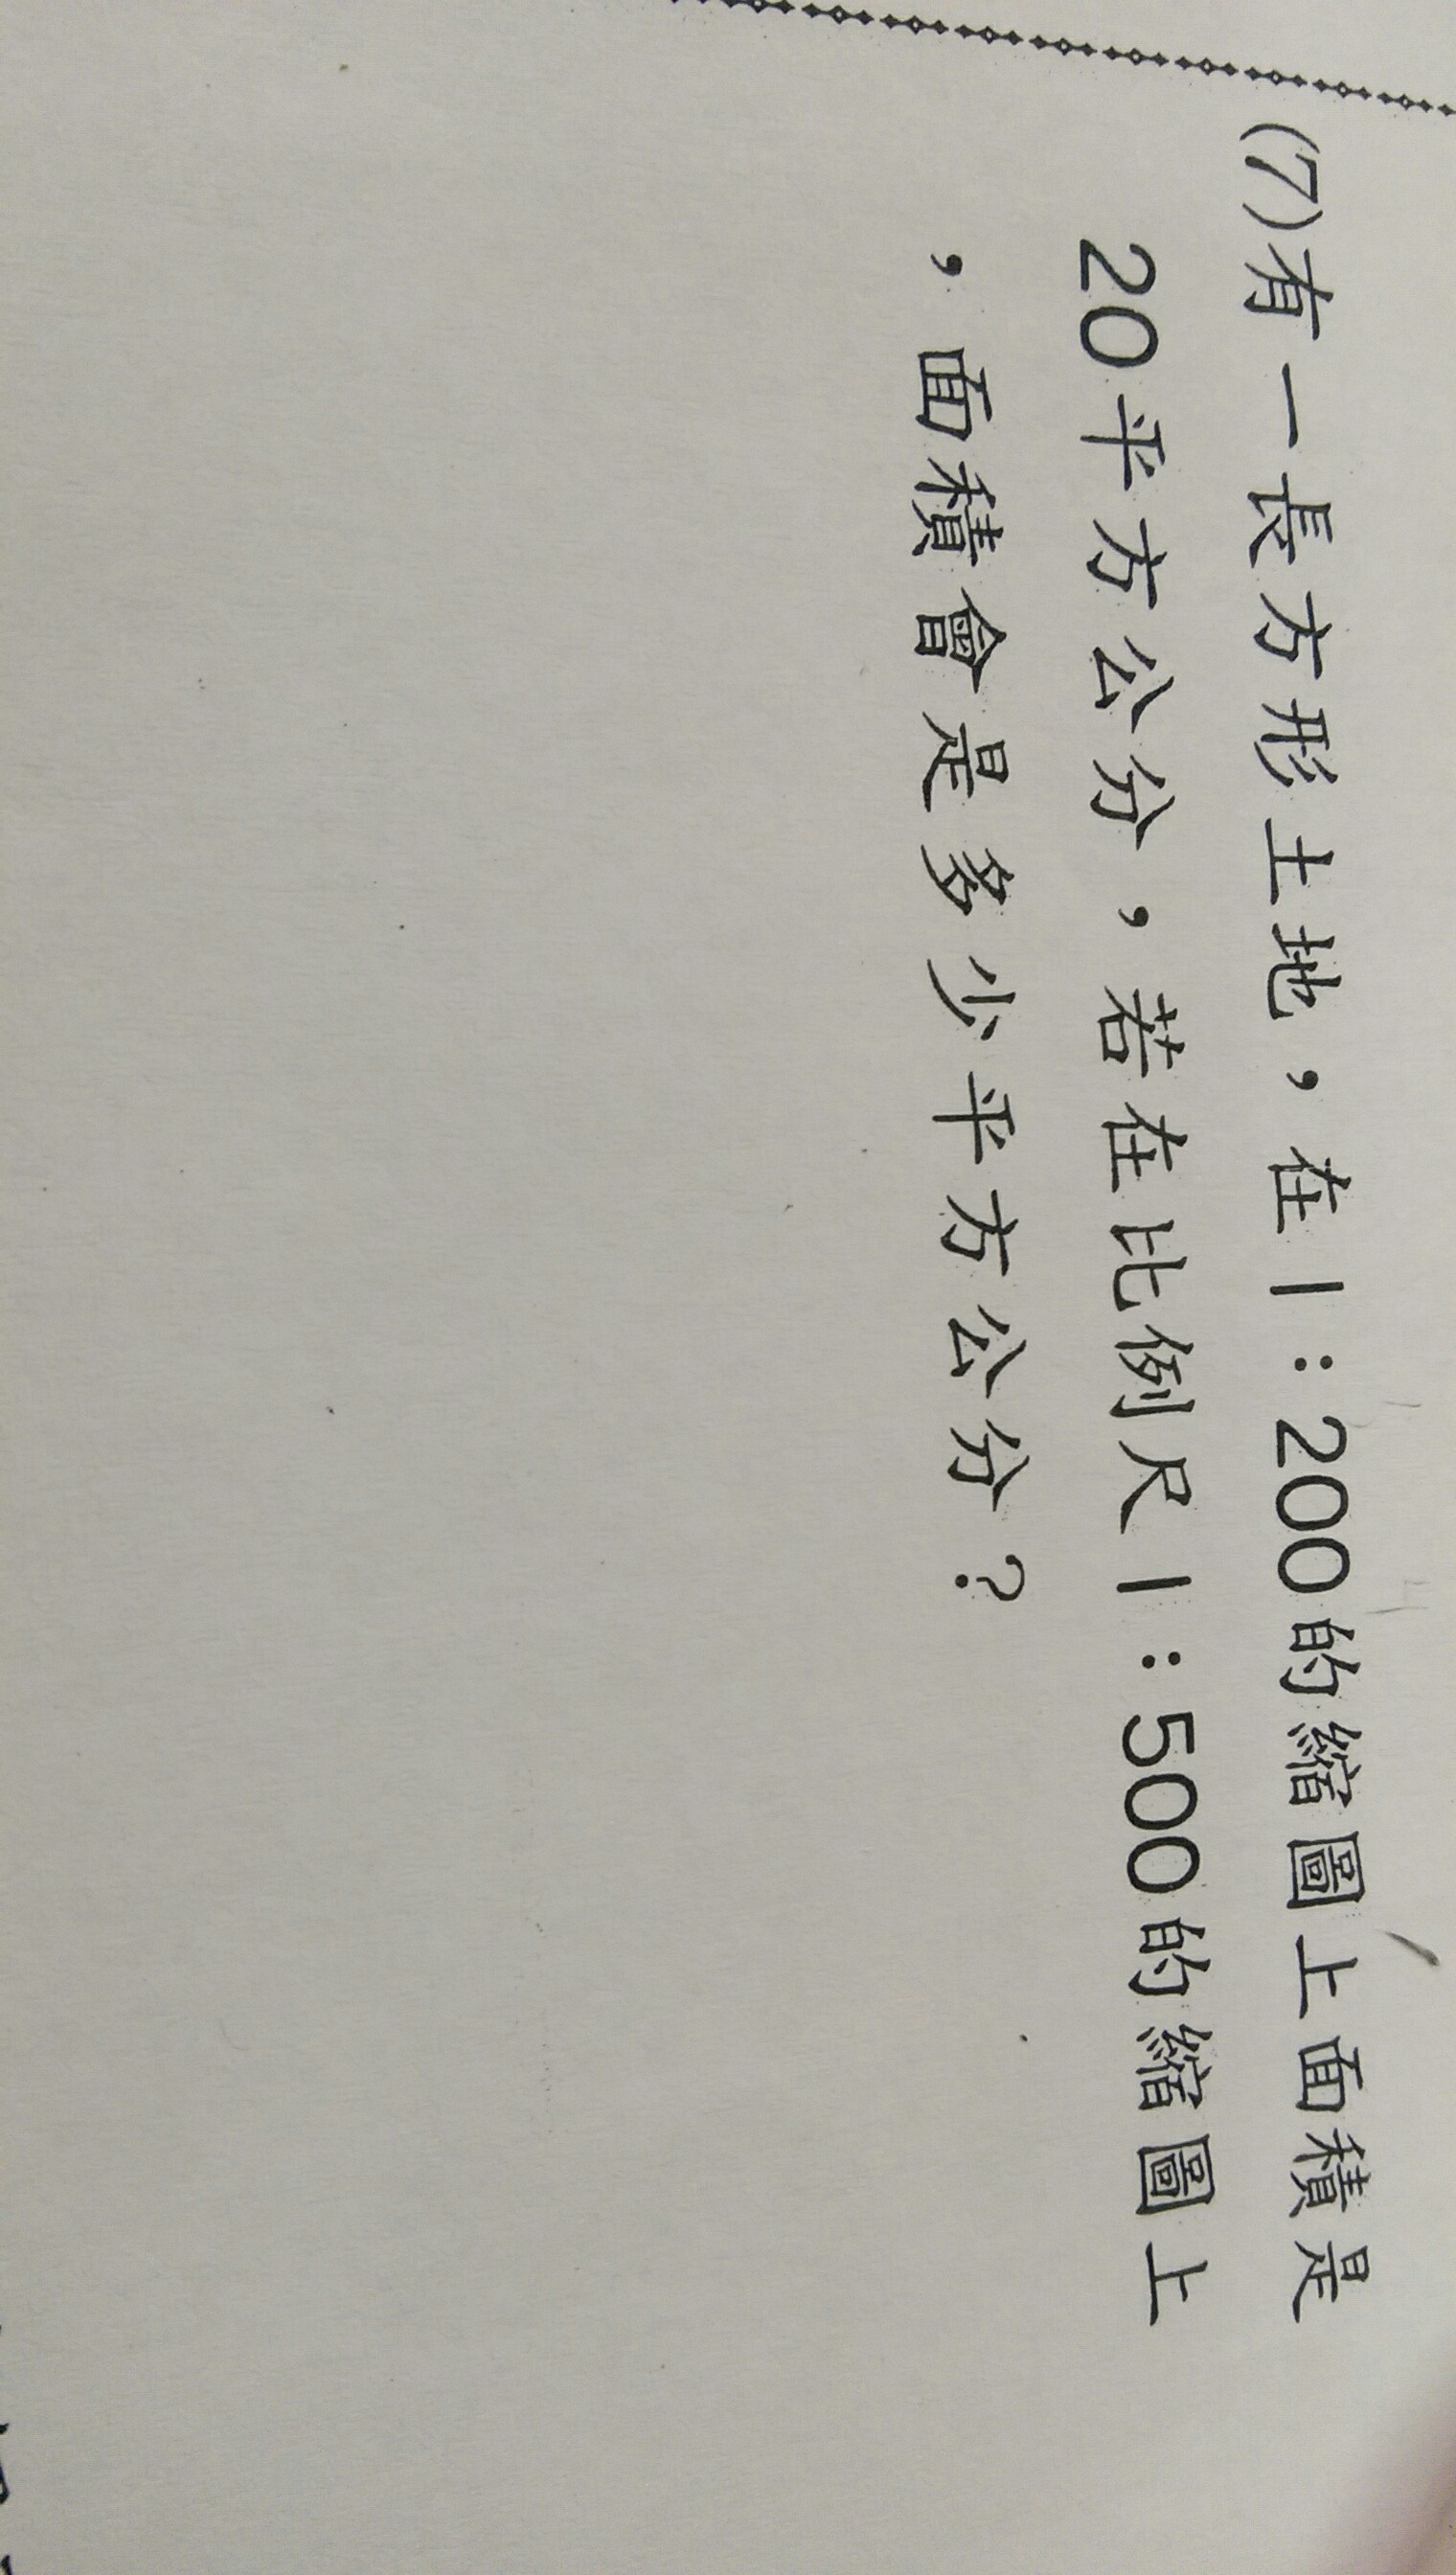 (7)有一長方形土地，在1：200的縮圖上面積是
20平方公分，若在比例尺1：500的縮圖上
，面積會是多少平方公分？